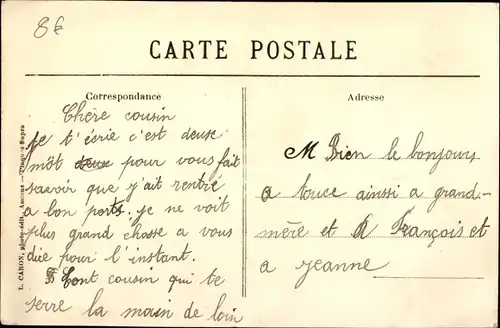 8€
CARTE POSTALE
Correspondance
Adresse
Chère cousin
je t'écrie c'est deuse
môt deuse pour vous fait
savoir que j'ait rentré
a bon ports. je ne voit
plus grand chose a vous
die pour l'instant.
Tont cousin qui te
serre la main de loin
M Bien le bonjours
a touce ainssi a grand-
mère et A François et
a jeanne
L. CARON, photo-édit., Amiens